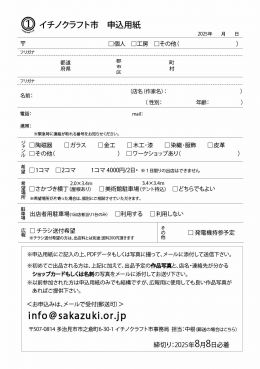 ① イチノクラフト市 申込用紙
2025年 月 日
〒 □個人 □工房 □その他( )
フリガナ
都道府県 郡市区 町村
フリガナ
名前: (店名(作家名): )
(性別: 年齢: )
電話: mail:
携帯:
※緊急時に連絡が取れる番号をお知らせください。
ジャンル □陶磁器 □ガラス □金工 □木工・漆 □染織・服飾 □皮革
□その他( ) □ワークショップあり( )
希望 □1コマ □2コマ 1コマ 4000円/2日・ ※1日限りの出店はできません
希望場所 □さかづき横丁 2.0×3.4m (屋根あり) □美術館駐車場 3.4×3.4m (テント持込) □どちらでもよい
※希望場所が片寄った場合は、個別にご相談させていただきます。
駐車場 出店者用駐車場(1店舗1台1台のみ) □利用する □利用しない
広報 □チラシ送付希望 その他 □発電機持参予定
※申込用紙にご記入の上、PDFデータもしくは写真に撮って、メールに添付して送信下さい。
※初めてご出品される方は、上記に加えて、出品予定の作品写真と、店名・連絡先が分かる
ショップカードもしくは名刺の写真をメールに添付してお送り下さい。
※以前参加された方は申込用紙のみでも結構ですが、広報用に使用しても良い作品写真が
あればご提供下さい。
<お申込みは、メールで受付(郵送可)>
info@sakazuki.or.jp
〒507-0814 多治見市市之倉町6-30-1 イチノクラフト市事務局 担当:中根(郵送の場合はこちら)
締切り:2025年8月8日必着